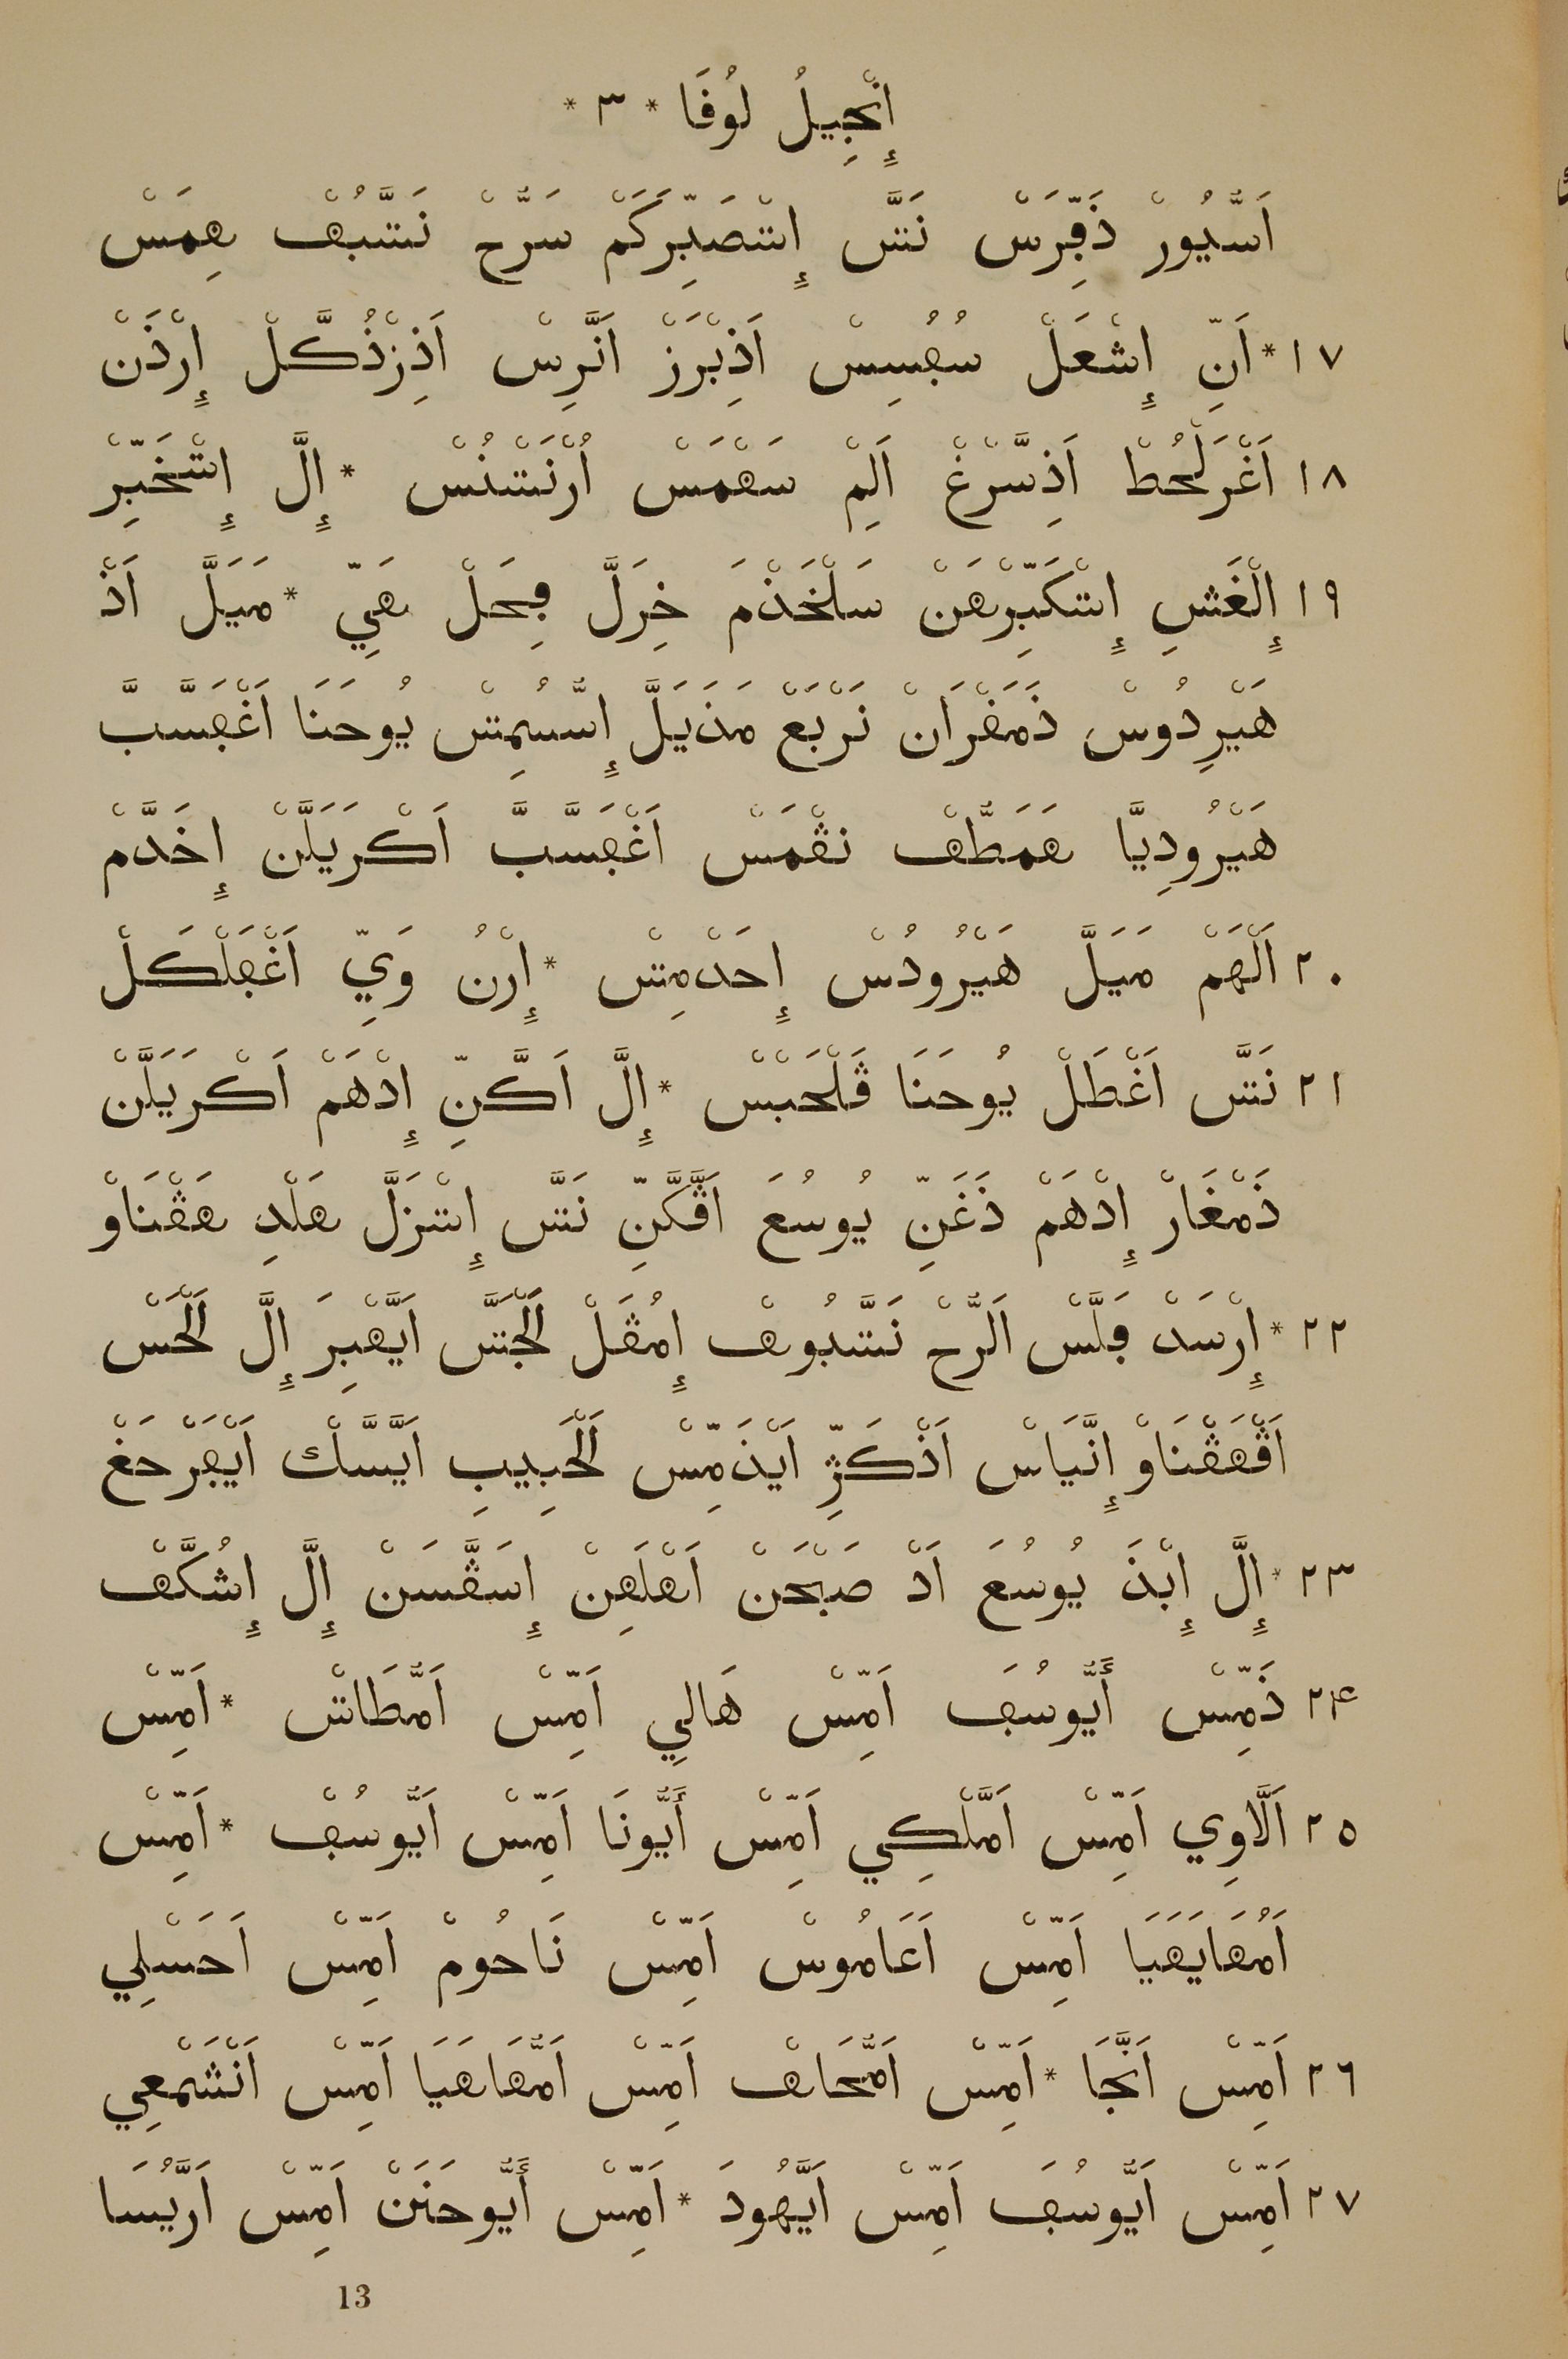 إِنْجِيلُ لُوقَا * ٣ *
اَسْيُورْ ذَفِّرَسْ نَتَّسْ إِتْصَبِّرِكَمْ سَرُّحْ نَتَّبُڢْ هِمَسْ
١٧ * اَنِّ إِشْعَلْ سُڢُسِسْ اَذِبْرَزْ اَنَّرِسْ اَذِزْذُكَّلْ إِرْذَنْ
١٨ اَغْرَلْحُطْ اَذِسَّرْغْ اَلِمْ سَهْمَسْ اُرْنَتْنُسْ * إِلَّ إِتْخَبِّرْ
١٩ إِلْغَشِ إِتْكَبِّرْهَنْ سَلْخَذْمَ خِرَلَّ ڢِحَلْ هَيِّ * مَيَلَّ اَذْ
هَيْرِدُوسْ ذَمَڢْرَانْ نَرْبَعْ مَذَيَلَّ إِسُّسْمِتْسْ يُوحَنَا اَغْڢَسَّبَّ
هَيْرُودِيَّا هَمَطُّڢْ نڨْمَسْ اَغْڢَسَّبَّ اَكْرَيَلَّنْ إِخَدَّمْ
٢٠ اَلْهَمْ مَيَلَّ هَيْرُودُسْ إِحَدْمِتْسْ * إِرْنُ وَيِّ اَغْڢَلْكَلْ
٢١ نَتَّسْ اَغْطَلْ يُوحَنَا ڨَلْحَبْسْ * إِلَّ اَكَّنِّ إِدْهَمْ اَكْرَيَلَّنْ
ذَمْغَارْ إِدْهَمْ ذَغَنِّ يُوسُعَ اَڨَّكَّنِّ نَتَّسْ إِتْزَلَّ هَلْدِ هَڨْنَاوْ
٢٢ * إِرْسَدْ ڢَلَّسْ اَلرُّحْ نَتَّبُوڢْ إِمُڨَلْ لَجْتَّسْ اَيَّهْبِرَ إِلَّ لَحَسْ
اَڨْهَڨْنَاوْ إِنَّيَاسْ اَذْكَرِّ اَيْذَمِّسْ لَحْبِيبِ اَيَّسَّكْ اَيْڢَرْحَغْ
٢٣ * إِلَّ إِبْذَ يُوسُعَ اَدْ صَبْحَنْ اَهْلَهِنْ إِسَڨَّسَنْ إِلَّ إِشُكَّڢْ
٢٤ ذَمِّسْ أَيُّوسُڢَ اَمِّسْ هَالِي اَمِّسْ اَمُّطَاتْ * اَمِّسْ
٢٥ اَلَّاوِي اَمِّسْ اَمَّلْكِي اَمِّسْ أَيُّونَا اَمِّسْ اَيُّوسُڢْ * اَمِّسْ
اَمُهَايَهَيَا اَمِّسْ اَعَامُوسْ اَمِّسْ نَاحُومْ اَمِّسْ اَحَسْلِي
٢٦ اَمِّسْ اَنَّجَا * اَمِّسْ اَمُّحَاهْ اَمِّسْ اَمُّهَاهَيَا اَمِّسْ اَنْشَمْعِي
٢٧ اَمِّسْ اَيُّوسُڢَ اَمِّسْ اَيَّهُودَ * اَمِّسْ أَيُّوحَنَنْ اَمِّسْ اَرَّيُسَا
13